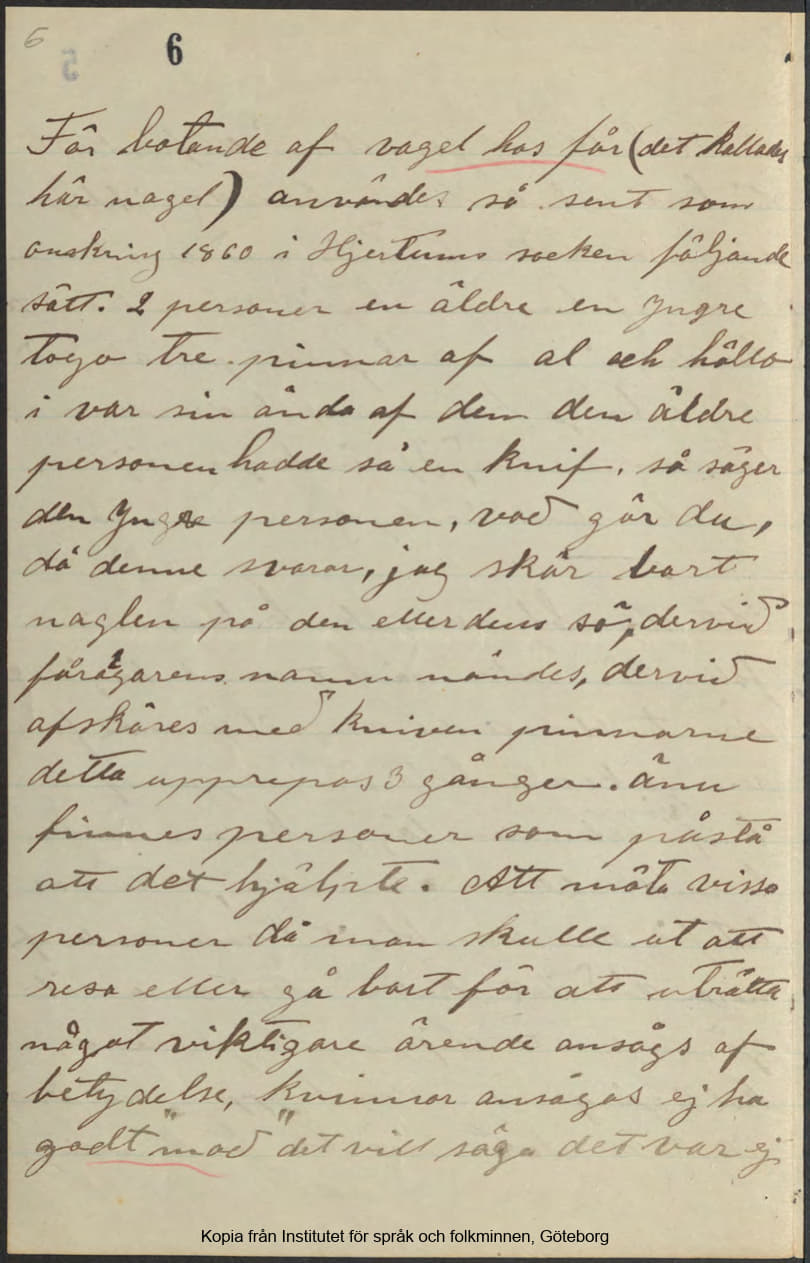 6
5
6
För botande af vagel hos får (det kallades
här nagel) användes så sent som
omskring 1860 i Hjertums socken följande
sätt. 2 personer en äldre en Yngre
togo tre pinnar af al och hållo
i var sin ända af dem den äldre
personen hadde så en knif. så säger
den Yngre personen, vad gör du,
då denne svarar, jag skär bort
naglen på den eller dens sö, dervid
fårägarens namn nändes, dervid
afskäres med kniven pinnarne
detta upprepas 3 gånger. änu
finnes personer som påstå
att det hjälpte. Att möta vissa
personer då man skulle ut att
resa eller gå bort för att uträtta
något viktigare ärende ansågs af
betydelse, kvinnor ansågos ej ha
godt "mod" det vill säga det var ej
Kopia från Institutet för språk och folkminnen, Göteborg